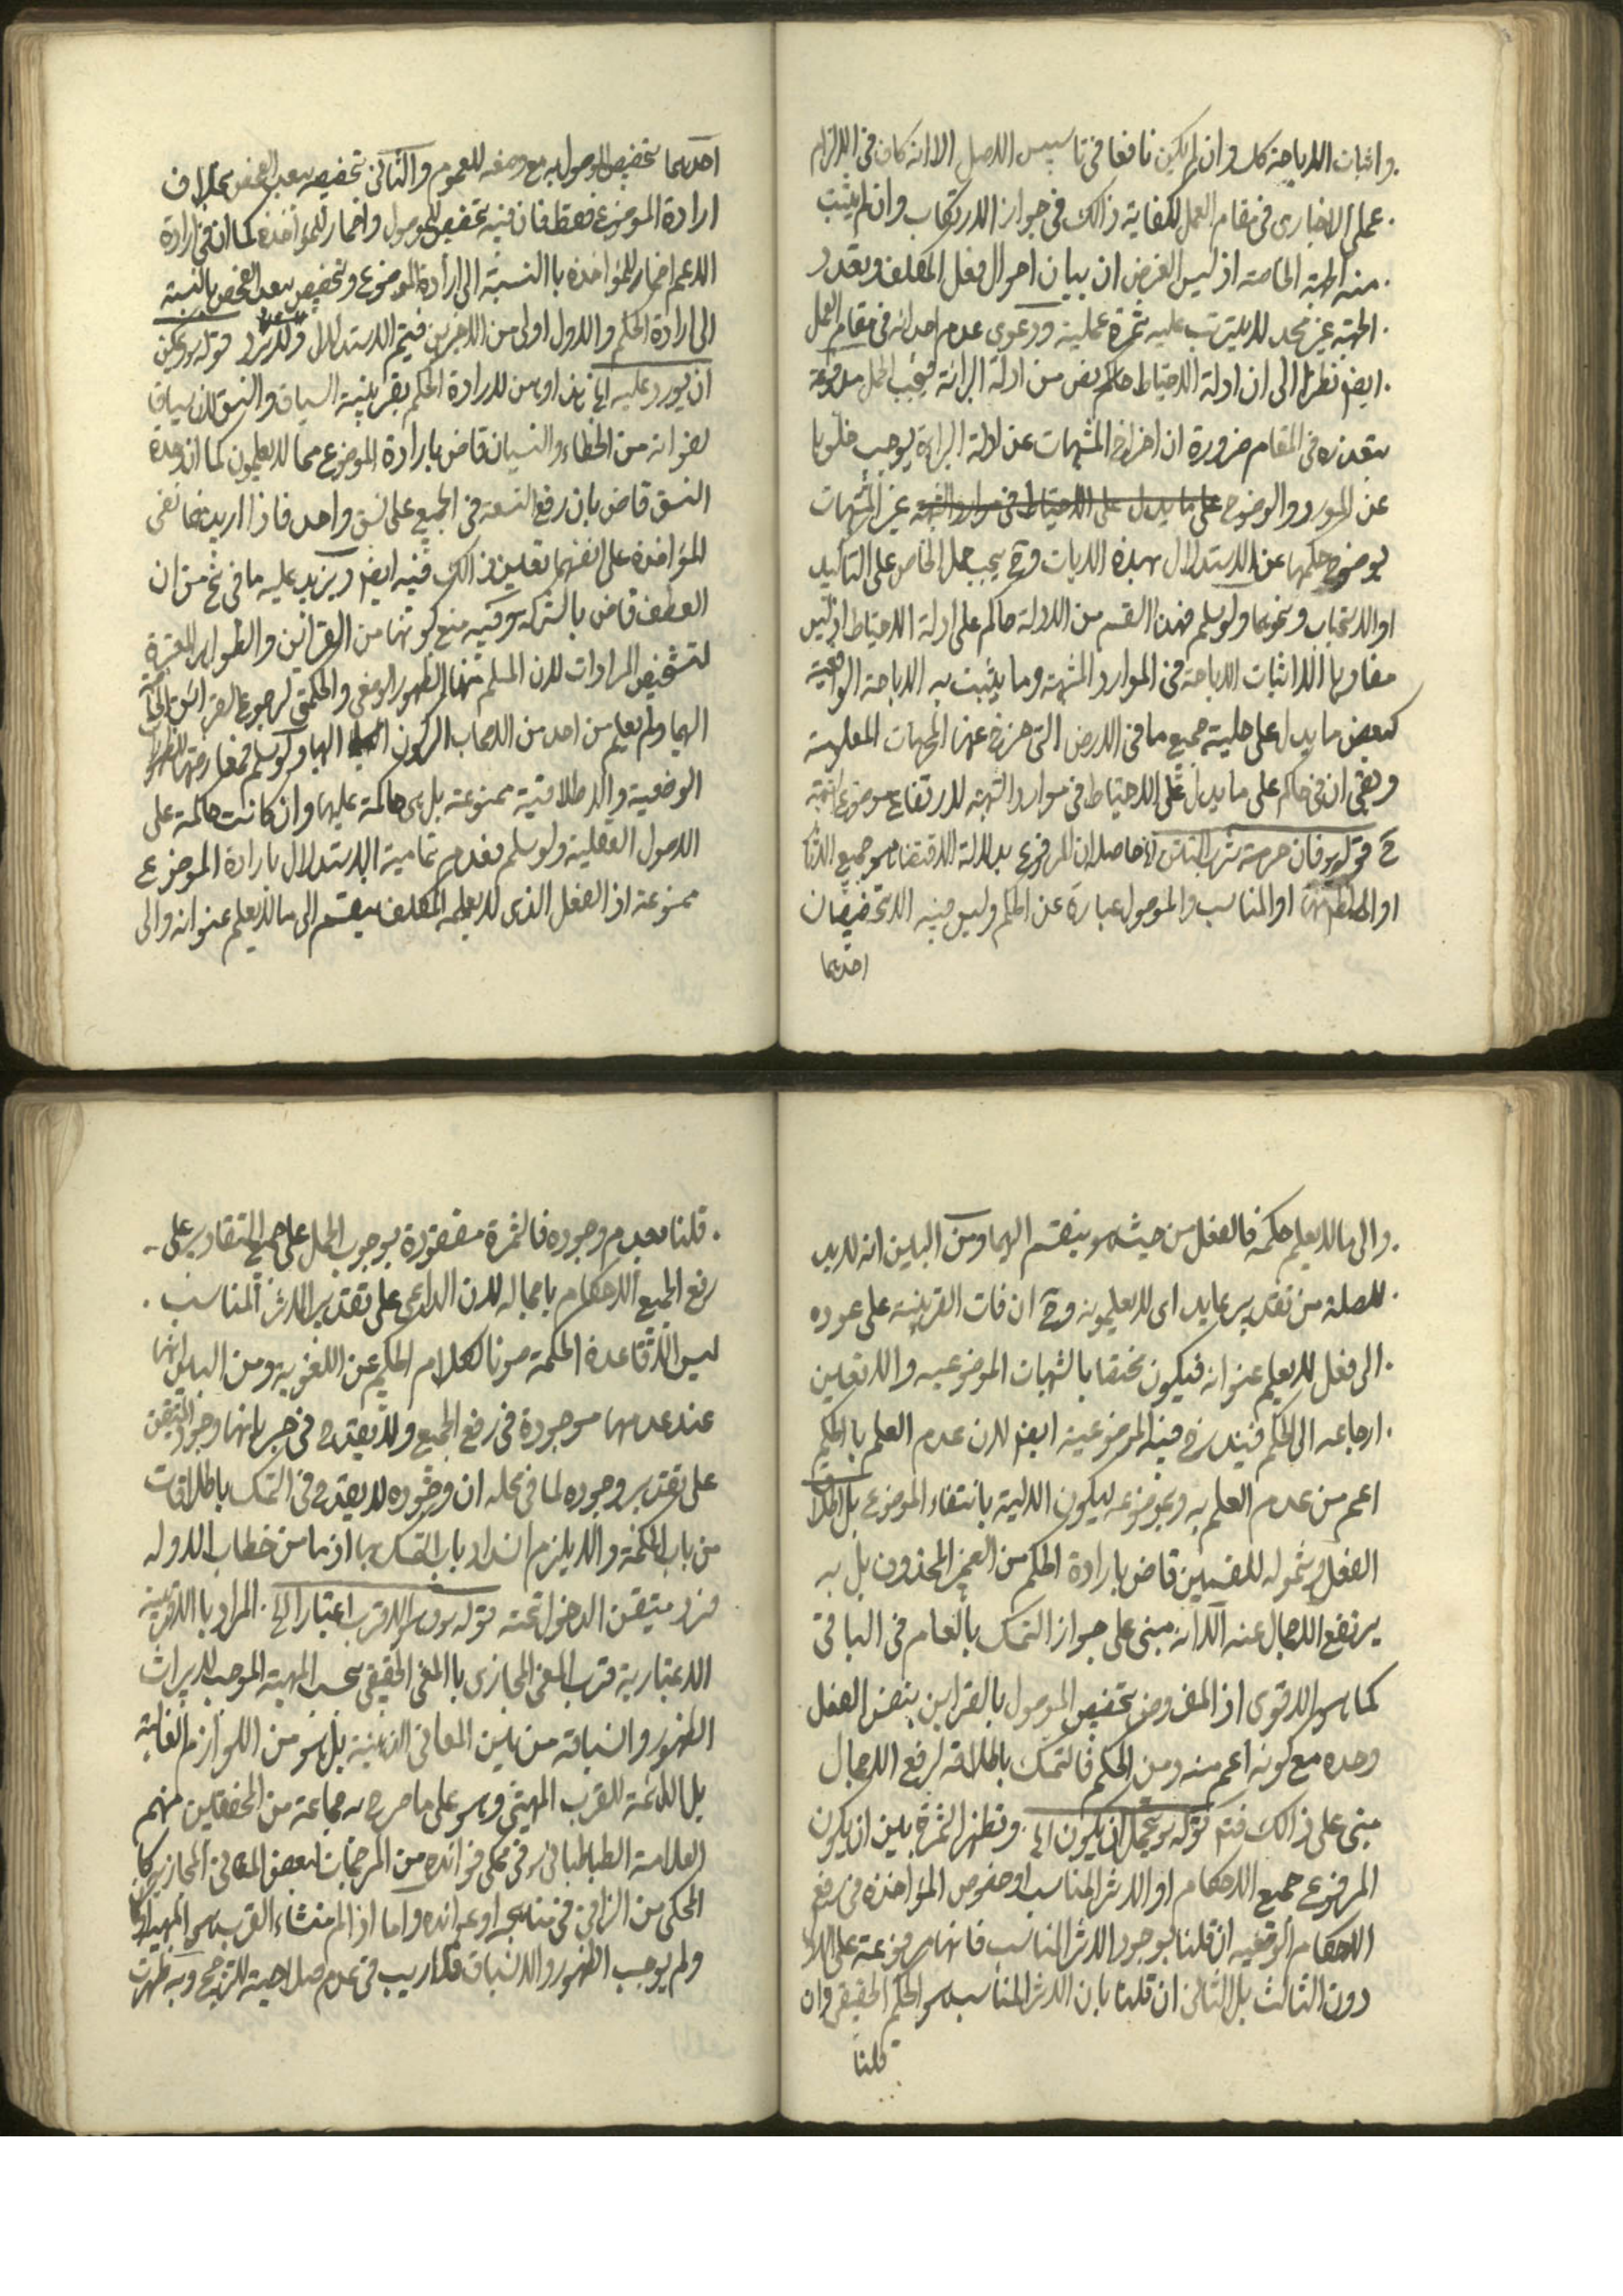 واثبات الاباحة كك وان لم يكن نافعا فى تاسيس الاصل الا انه كاف فى الالزام
على الاخبارى فى مقام العمل لكفاية ذالك فى جواز الارتكاب وان لم يثبت
منه الجهة الخاصة اذ ليس الغرض ان بيان احوال فعل المكلف وتعدد
الجهة غير مجد لا يترتب عليه ثمرة عملية ودعوى عدم احداثه فى مقام العمل
ايضا نظرا الى ان ادلة الاحتياط حاكم من ادلة البرائة فيجب الحمل مدفوعة
بتعذره فى المقام ضرورة ان اخراج المشبهات عن ادلة البراءة يوجب خلوها
عن المورد والوضوح غير المشبهات
بوضوح حكمها عن الاستدلال بهذه الايات وح يجب حمل الخاص على التاكيد
او الاستحباب ونحوها ولو سلم فهذا القسم من الادلة حاكم على ادلة الاحتياط اذ ليس
مفادها الا اثبات الاباحة فى الموارد المشبهة وما يثبت به الاباحة الواقعية
كبعض ما يدل على حلية جميع ما فى الارض التى خرج عنها المحرمات المعلومة
وبقى ان فى حاكم على ما يدل على الاحتياط فى موارد الشبهة لارتفاع موضوع
ح قوله ره فان حرمة شرب التتن الخ حاصله ان المرفوع بدلالة الاقتضاء هو جميع الاثار
او المناسب والموصول عبارة عن الحكم وليس فيه الا تخصيصان
احدهما
احدهما تخصيص الموصول به مع وضعه للعموم والثانى تخصيصه ببعد الفحص بخلاف
ارادة الموضوع فقط فان فيه تخصيص الموصول واضمار للمؤاخذة كما ان فى ارادة
الاعم اضمار المؤاخذة با النسبة الى ارادة الموضوع وتخصيص ببعد الفحص بالنسبة
الى ارادة الحكم والاول اولى من الاخيرين فيتم الاستدلال قوله ره ويمكن
ان يورد عليه الخ لارادة الحكم بقرينة السياق والنسق لان سياق
اخوانه من الخطاء والنسيان قاض بارادة الموضوع مما لا يعلمون كما ان وحدة
النسق قاض بان رفع التسعة فى الجميع على نسق واحد فاذا اريد نفى
المؤاخذة على انفسها تعين ذالك فيه ايضا ويزيد عليه ما فى من ان
العطف قاض بالشركة وفيه منع كونها من القرائن والظواهر المعتبرة
لتشخيص المرادات لان المسلم منها الظهور الوضعى والحكمتى لرجوع القرائن
اليها ولم يعلم من احد من الاصحاب الركون اليها ولو سلم فمعارضتها للظهور
الوضعية والاطلاقية ممنوعة بل هى حاكمة عليها وان كانت حاكمة على
الاصول العقلية ولو سلم فعدم تمامية الاستدلال بارادة الموضوع
ممنوعة اذ الفعل الذى لا يعلمه المكلف ينقسم الى ما لا يعلم عنوانه والى
والى ما لا يعلم حكمه فالفعل من حيث هو ينقسم اليهما ومن البين انه لا بد
للصلة من تقدير عايد اى لا يعلمونه وح ان فات القرينة على عوده
الى فعل لا يعلم عنوانه فيكون مختصا بالشبهات الموضوعيه والا تعين
ارجاعه الى الحكم فيندرج فيه الموضوعية ايضا لان عدم العلم بالحكم
اعم من عدم العلم به وبموضوعه ليكون السالبة بانتفاء الموضوع بل اطلاق
الفعل وشموله للقسمين قاض بارادة الحكم من الضمير المحذوف بل به
يرتفع الاجمال عنه الا انه مبنى على جواز التمسك بالعام فى الباقى
كما هو الاقوى اذ المفروض تخصيص الموصول بالقراين بنفس الفعل
وحده مع كونه اعم منه ومن الحكم فالتمسك باطلاقه لرفع الاجمال
مبنى على ذالك فتم قوله ره يحتمل ان يكون الخ وتظهر الثمرة بين ان يكون
المرفوع جميع الاحكام او الاثر المناسب او خصوص المؤاخذة فى رفع
الاحكام الوضعيه ان قلنا بوجود الاثر المناسب فانها مرفوعة على الاول
دون الثالث بل الثانى ان قلنا بان الاثر المناسب هو الحكم الحقيقى وان
قلنا
قلنا بعدم وجوده فالثمرة مفقودة بوجوب الحمل على جميع التقادير على
رفع الجميع الاحكام باجماله لان الداعى على تقدير الاثر المناسب
ليس الا قاعدة الحكمة صونا لكلام الحكيم عن اللغوية ومن البين انها
عند عدمها موجودة فى رفع الجميع ولا يقدح فى جريانها وجود المتيقن
على تقدير وجوده لما فى محله ان وجوده لا يقدح فى التمسك باطلاقات
من باب الحكمة والا يلزم انسداد باب التمسك بها اذ ما من خطاب الا وله
فرد متيقن الدخول تحته قوله ره هو الاقرب اعتبارا الخ المراد با الاقربية
الاعتبارية قرب المعنى المجازى با المعنى الحقيقى بحسب المهية الموجب لايراث
الظهور وانسباقه من بين المعانى الذهنية بل هو من اللوازم الغالبة
بل الدائمة للقرب المهيتى وهو على ما صرح به جماعة من المحققين منهم
العلامة الطباطبائى ره فى محكى فوائده من المرجحات لبعض المعانى المجازية كما
المحكى من النراقى فى مناهجه او عوائده واما اذا لم منشاء القرب هو المهية
ولم يوجب الظهور والانسباق فلا ريب فى عدم صلاحيته للترجيح وبه ظهرت